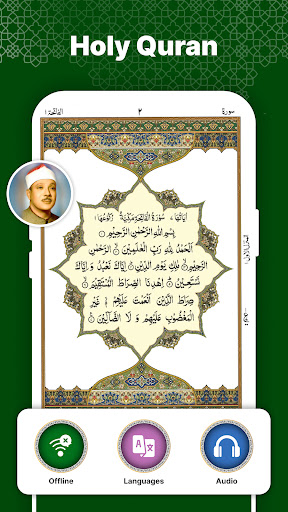 Holy Quran
سورة ٢ الفاتحة ١
اٰيَاتُهَا ٧ سُوْرَةُ الْفَاتِحَةِ مَكِّيَّةٌ رُكُوْعُهَا ١
بِسْمِ اللّٰهِ الرَّحْمٰنِ الرَّحِيْمِ
اَلْحَمْدُ لِلّٰهِ رَبِّ الْعٰلَمِيْنَ ۝ الرَّحْمٰنِ
الرَّحِيْمِ ۝ مٰلِكِ يَوْمِ الدِّيْنِ ۝ اِيَّاكَ نَعْبُدُ وَ اِيَّاكَ
نَسْتَعِيْنُ ۝ اِهْدِنَا الصِّرَاطَ الْمُسْتَقِيْمَ ۝
صِرَاطَ الَّذِيْنَ اَنْعَمْتَ عَلَيْهِمْ ۙ غَيْرِ
الْمَغْضُوْبِ عَلَيْهِمْ وَ لَا الضَّآلِّيْنَ ۝
Offline Languages Audio